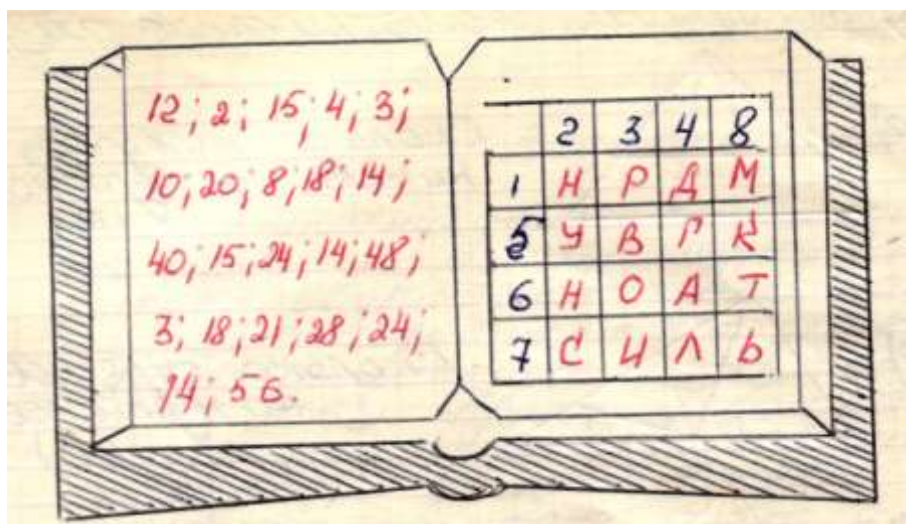 12; 2; 15; 4; 3;
10; 20; 8; 18; 14;
40; 15; 24; 14; 48;
3; 18; 21; 28; 24;
14; 56.
2 3 4 8
1 Н Р Д М
5 У В Г К
6 Н О А Т
7 С И Л Ь